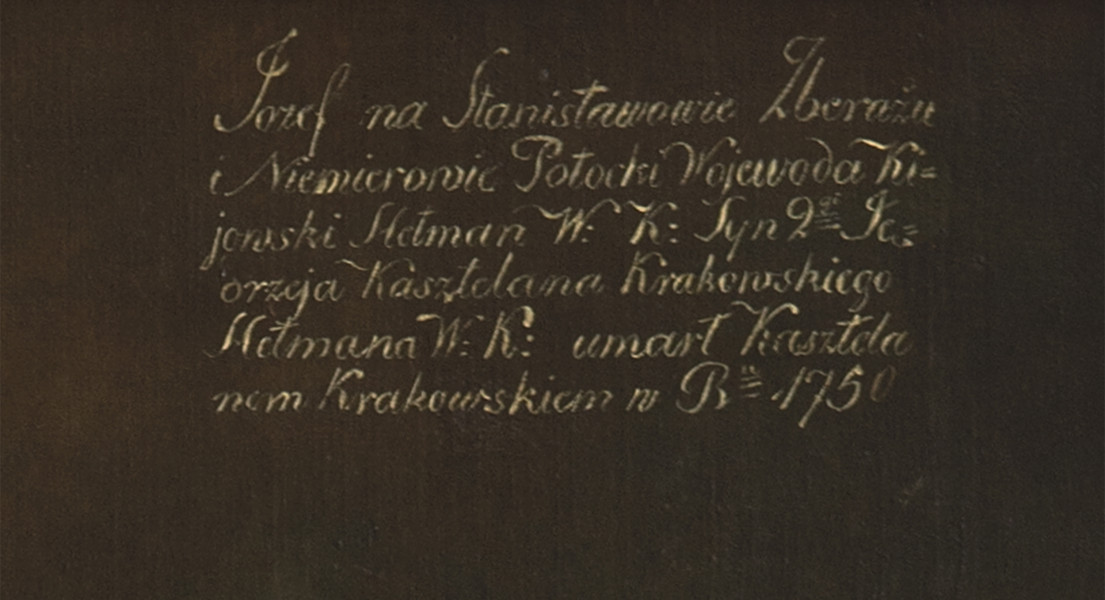 Jozef na Stanisławowie Zberażu
i Niemierowie Potocki Wojewoda Ki=
jowski Hetman W: K: Syn 2gi Je=
orzeja Kasztelana Krakowskiego
Hetmana W: K: umarł Kasztela
nem Krakowskiem w Ru 1750